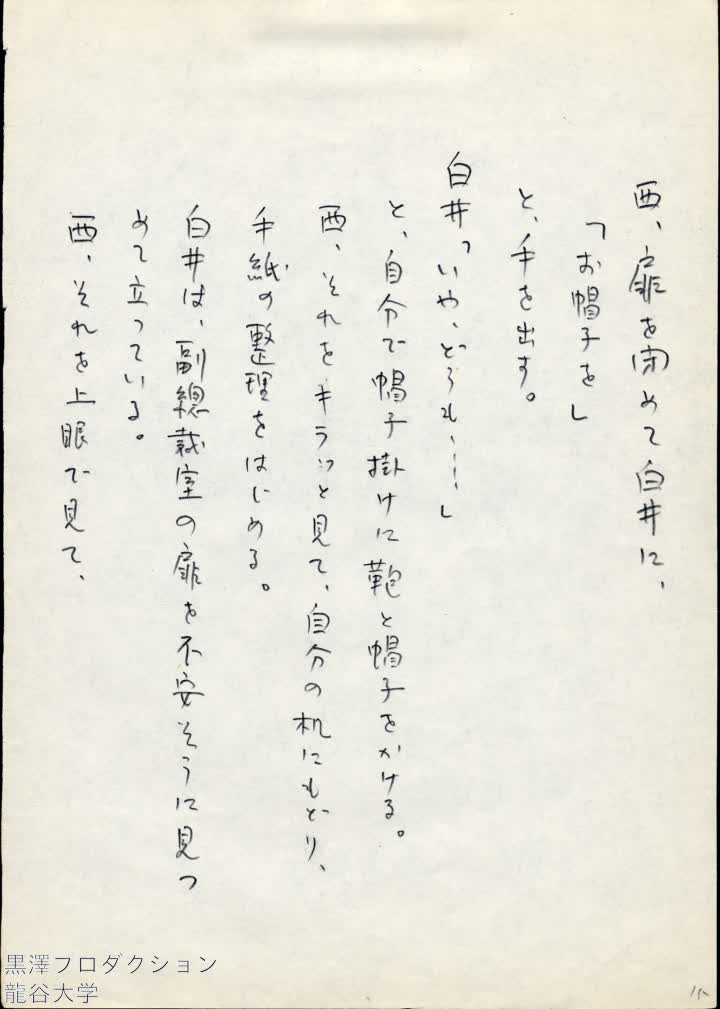 西、扉を閉めて白井に、
「お帽子を」
と、手を出す。
白井「いや、どうも、……」
と、自分で帽子掛けに鞄と帽子をかける。
西、それをキラッと見て、自分の机にもどり、
手紙の整理をはじめる。
白井は、副總裁室の扉を不安そうに見つ
めて立っている。
西、それを上眼で見て、
黒澤プロダクション
龍谷大学